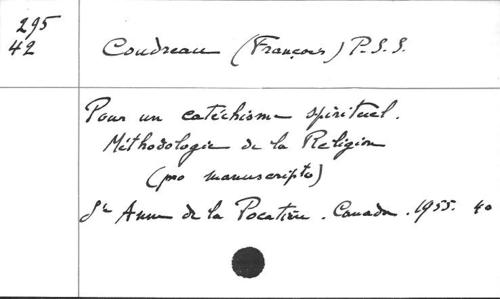 295
42
Coudreau (François) P.S.S.
Pour un catéchisme spirituel.
Méthodologie de la Religion
(pro manuscripto)
Ste Anne de la Pocatière. Canada. 1955. 40